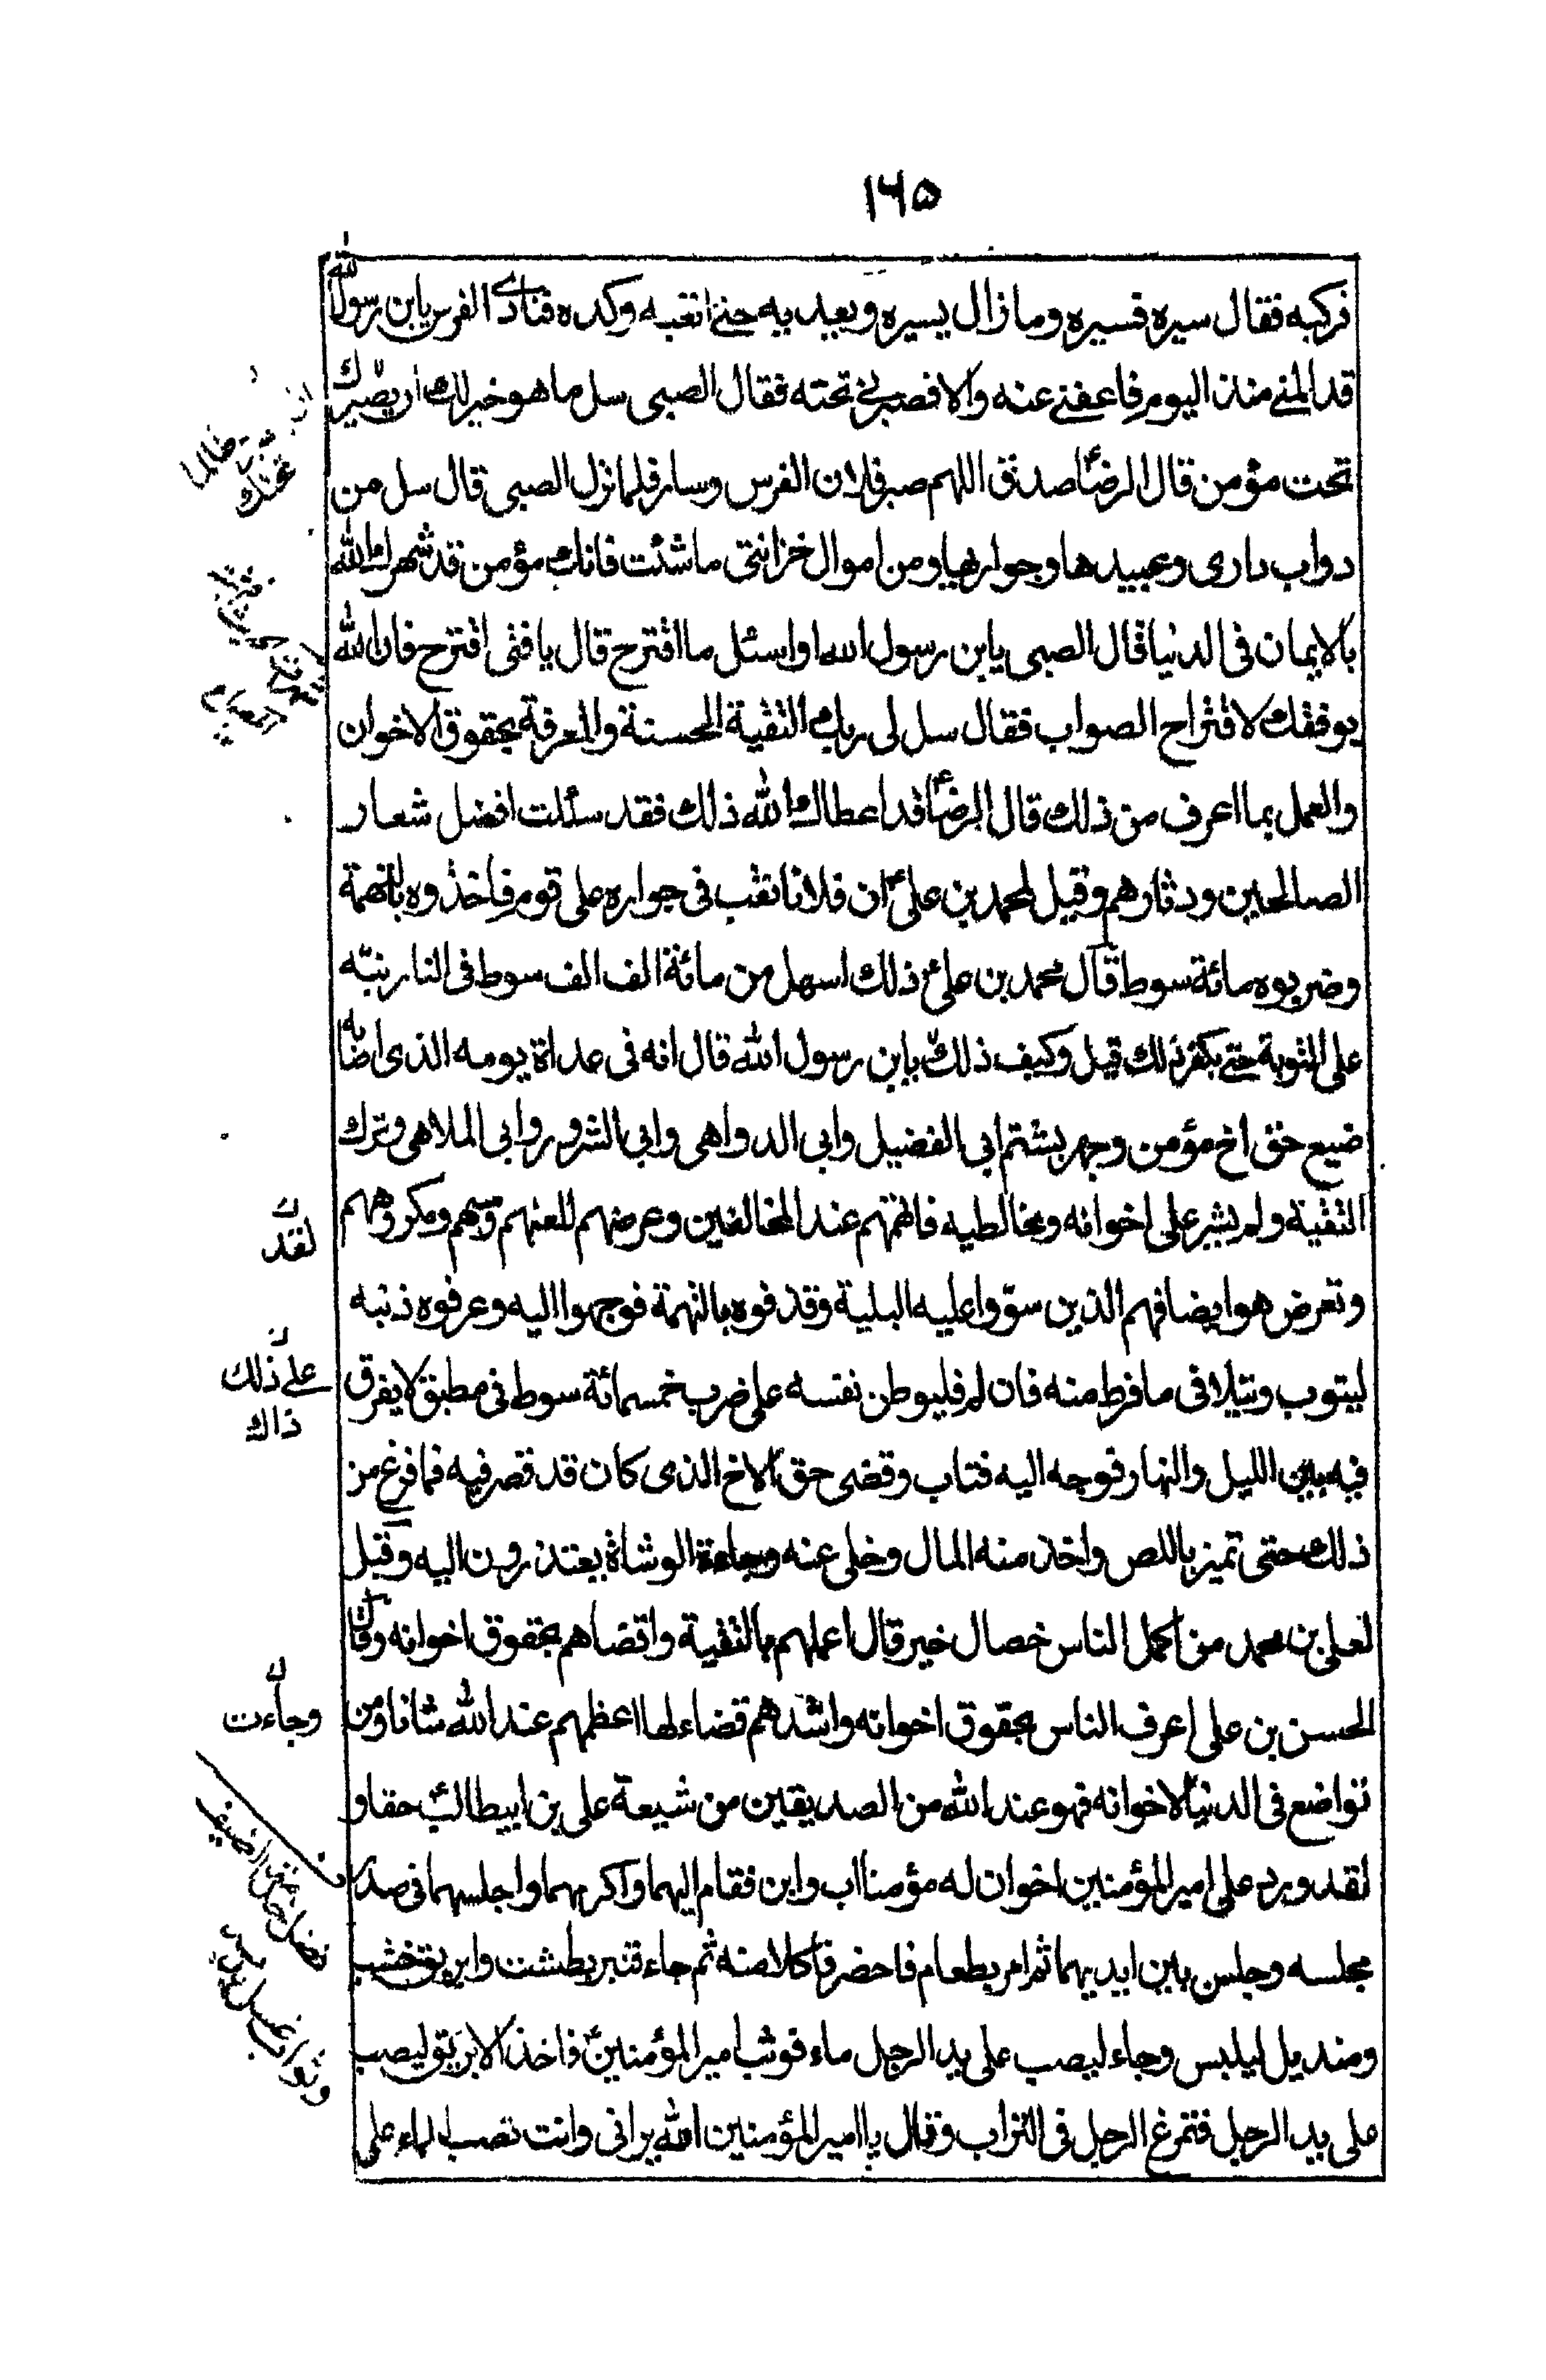 ١٦٥
فركبه فقال سيره فسيره وما زال يسيره ويعيد يه حتى اتعبه وكده فنادى الفرس يابن رسول الله
قد المنى منذ اليوم فاعفنى عنه والا فصبرنى تحته فقال الصبى سل ما هو خير لك ان يصبرك
تحت مؤمن قال الرضاع صدق اللهم صبر فلان الفرس وسار فلما نزل الصبى قال سل من
دواب دارى وعبيدها وجواريها ومن اموال خزانتى ما شئت فانك مؤمن قد شهرك الله
بالايمان فى الدنيا قال الصبى يابن رسول الله او اسئل ما اقترح قال يا فتى اقترح فان الله
يوفقك لاقتراح الصواب فقال سل لى ربك التقية الحسنة والمعرفة بحقوق الاخوان
والعمل بما اعرف من ذلك قال الرضاع قد اعطاك الله ذلك فقد سئلت افضل شعار
الصالحين ودثارهم وقيل لمحمد بن على ع ان فلانا نقب فى جواره على قوم فاخذوه بالتهمة
وضربوه مائة سوط قال محمد بن على ع ذلك اسهل من مائة الف الف سوط فى النار نبّه
على التوبة حتى يكفر ذلك قيل وكيف ذلك يابن رسول الله قال انه فى غداة يومه الذى اصابه
ضيع حق اخ مؤمن وجهر بشتم ابى الفضيل وابى الدواهى وابى الشرور وابى الملاهى وترك
التقية ولم يستر على اخوانه ومخالطيه فاتهمهم عند المخالفين وعرضهم للعنهم وسبهم ومكروههم
وتعرض هو ايضا فهم الذين سوّوا عليه البلية وقذفوه بالتهمة فوجهوا اليه وعرفوه ذنبه
ليتوب ويتلافى ما فرط منه فان لم فليوطن نفسه على ضرب خمسمائة سوط فى مطبق لا يفرق
فيه بين الليل والنهار فوجه اليه فتاب وقضى حق الاخ الذى كان قد قصر فيه فما فرغ من
ذلك حتى تميز باللص واخذ منه المال وخلى عنه وجاءة الوشاة يعتذرون اليه وقيل
لعلى بن محمد من اكمل الناس خصال خير قال اعملهم بالتقية واقضاهم بحقوق اخوانه وقال
الحسن بن على اعرف الناس بحقوق اخوانه واشدهم قضاء لها اعظمهم عند الله شانا ومن
تواضع فى الدنيا لاخوانه فهو عند الله من الصديقين من شيعة على بن ابيطالب ع حقا و
لقد ورد على امير المؤمنين اخوان له مؤمنا اب وابن فقام اليهما واكرمهما واجلسهما فى صدر
مجلسه وجلس بين ايديهما ثم امر بطعام فاحضر فاكلا منه ثم جاء قنبر بطشت وابريق خشب
ومنديل ليلبس وجاء ليصب على يد الرجل ماء فوثب امير المؤمنين ع فاخذ الابريق ليصب
على يد الرجل فتمرغ الرجل فى التراب وقال يا امير المؤمنين الله يرانى وانت تصب الماء على
لقد
على ذلك
ذاك
وجاءت